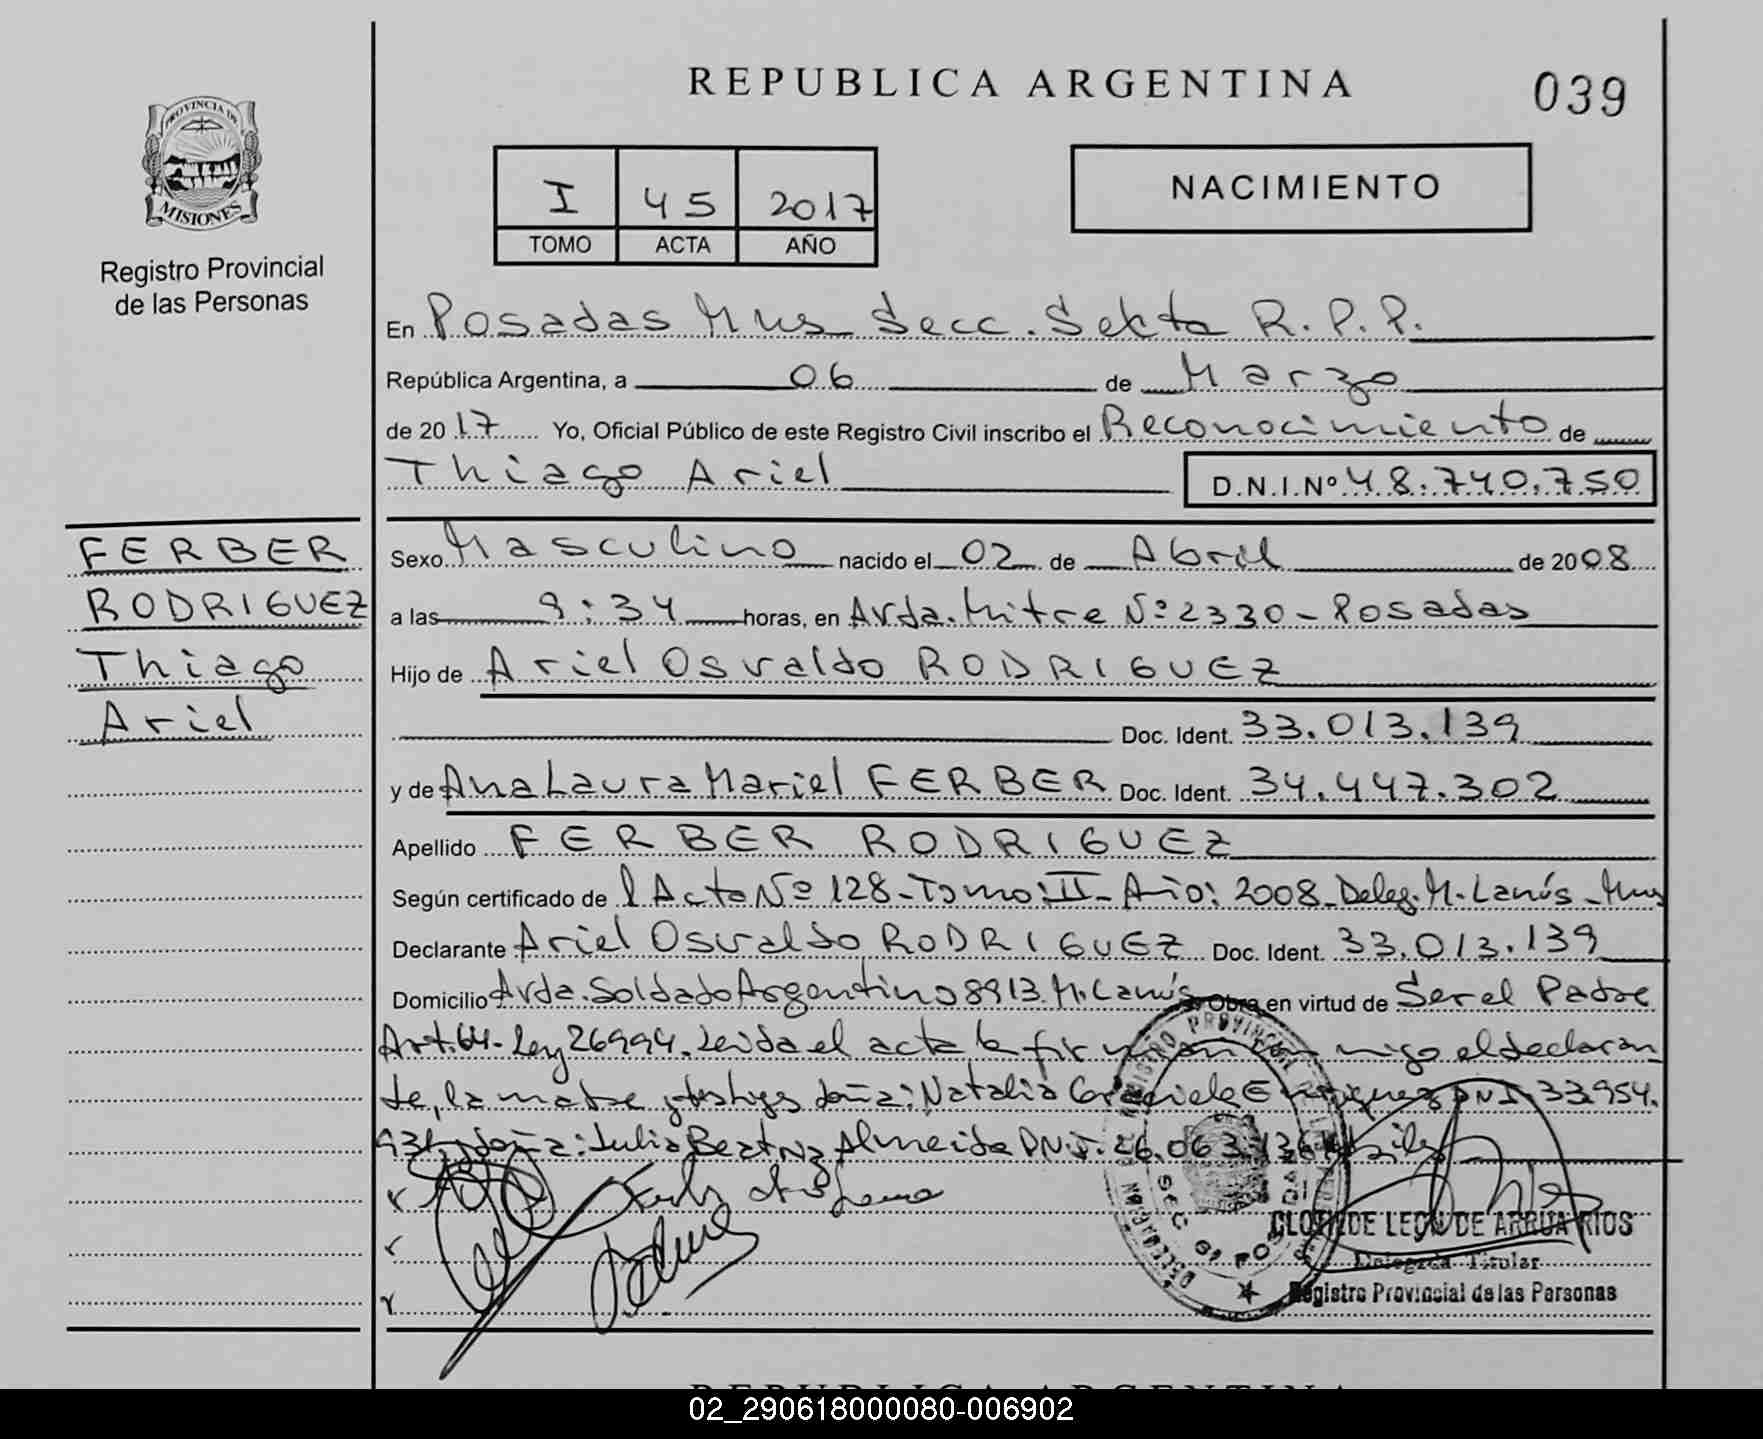 REPUBLICA ARGENTINA
039
PROVINCIA DE
MISIONES
Registro Provincial
de las Personas
I 45 2017
TOMO ACTA AÑO
NACIMIENTO
En Posadas Mnes Secc. Sexta R.P.P.
República Argentina, a 06 de Marzo
de 2017 Yo, Oficial Público de este Registro Civil inscribo el Reconocimiento de
Thiago Ariel D.N.I.Nº 48.740.750
FERBER
RODRIGUEZ
Thiago
Ariel
Sexo Masculino nacido el 02 de Abril de 2008
a las 9:34 horas, en Avda. Mitre Nº 2330 - Posadas
Hijo de Ariel Osvaldo RODRIGUEZ
Doc. Ident. 33.013.139
y de Ana Laura Mariel FERBER Doc. Ident. 34.447.302
Apellido FERBER RODRIGUEZ
Según certificado de l Acta Nº 128 - Tomo: II - Año: 2008 - Deleg. M. Lanús - Mnes
Declarante Ariel Osvaldo RODRIGUEZ Doc. Ident. 33.013.139
Domicilio Avda. Soldado Argentino 8913. M. Lanús Obra en virtud de Ser el Padre
Art. 64 - Ley 26994. Leida el acta la firman conmigo el declaran
te, la madre y testigos doña: Natalia Graciela Enriquez DNI. 33.954.
931 y doña: Julia Beatriz Almeida DNI. 26.063.136
CLOTILDE LEON DE ARRUA RIOS
Delegada Titular
Registro Provincial de las Personas
REPUBLICA ARGENTINA
02_290618000080-006902